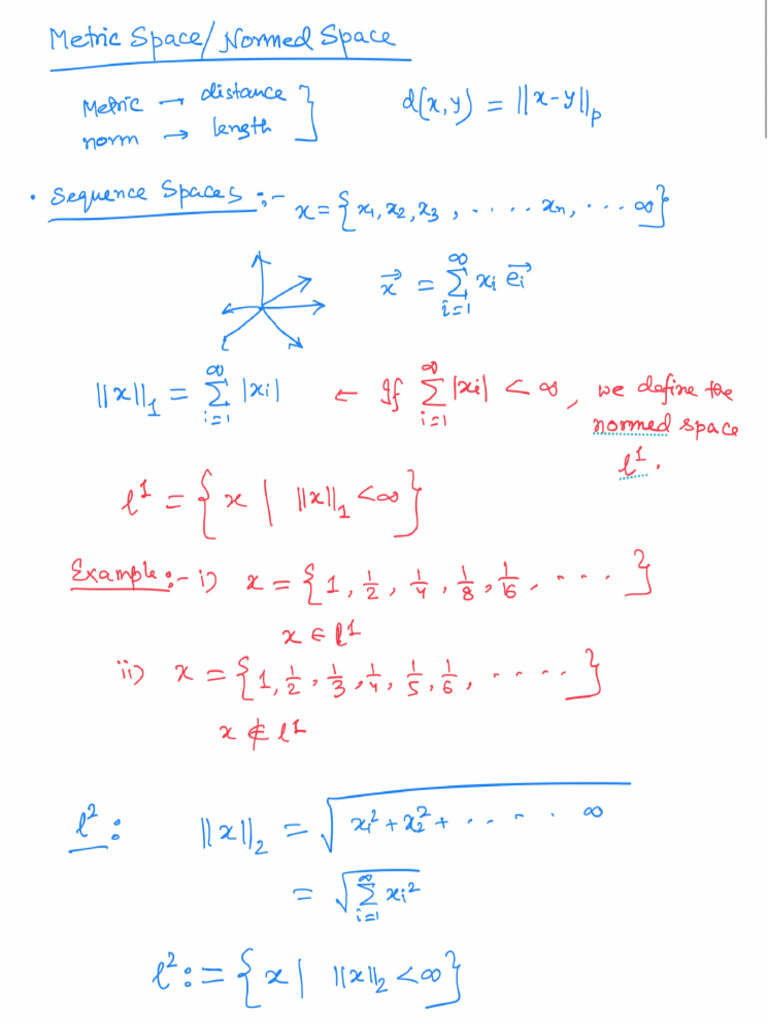 Metric Space/Normed Space
Metric → distance
norm → length } d(x,y) = ||x-y||_p
• Sequence Spaces :- x = {x_1, x_2, x_3, ..... x_n, ... ∞}
x⃗ = ∑_{i=1}^{∞} x_i e_i⃗
||x||_1 = ∑_{i=1}^{∞} |x_i| ← If ∑_{i=1}^{∞} |x_i| < ∞, we define the
normed space
l^1.
l^1 = {x | ||x||_1 < ∞}
Example :- i) x = {1, 1/2, 1/4, 1/8, 1/16, ....}
x ∈ l^1
ii) x = {1, 1/2, 1/3, 1/4, 1/5, 1/6, .....}
x ∉ l^1
l^2 : ||x||_2 = √(x_1^2 + x_2^2 + ..... ∞)
= √(∑_{i=1}^{∞} x_i^2)
l^2 := {x | ||x||_2 < ∞}